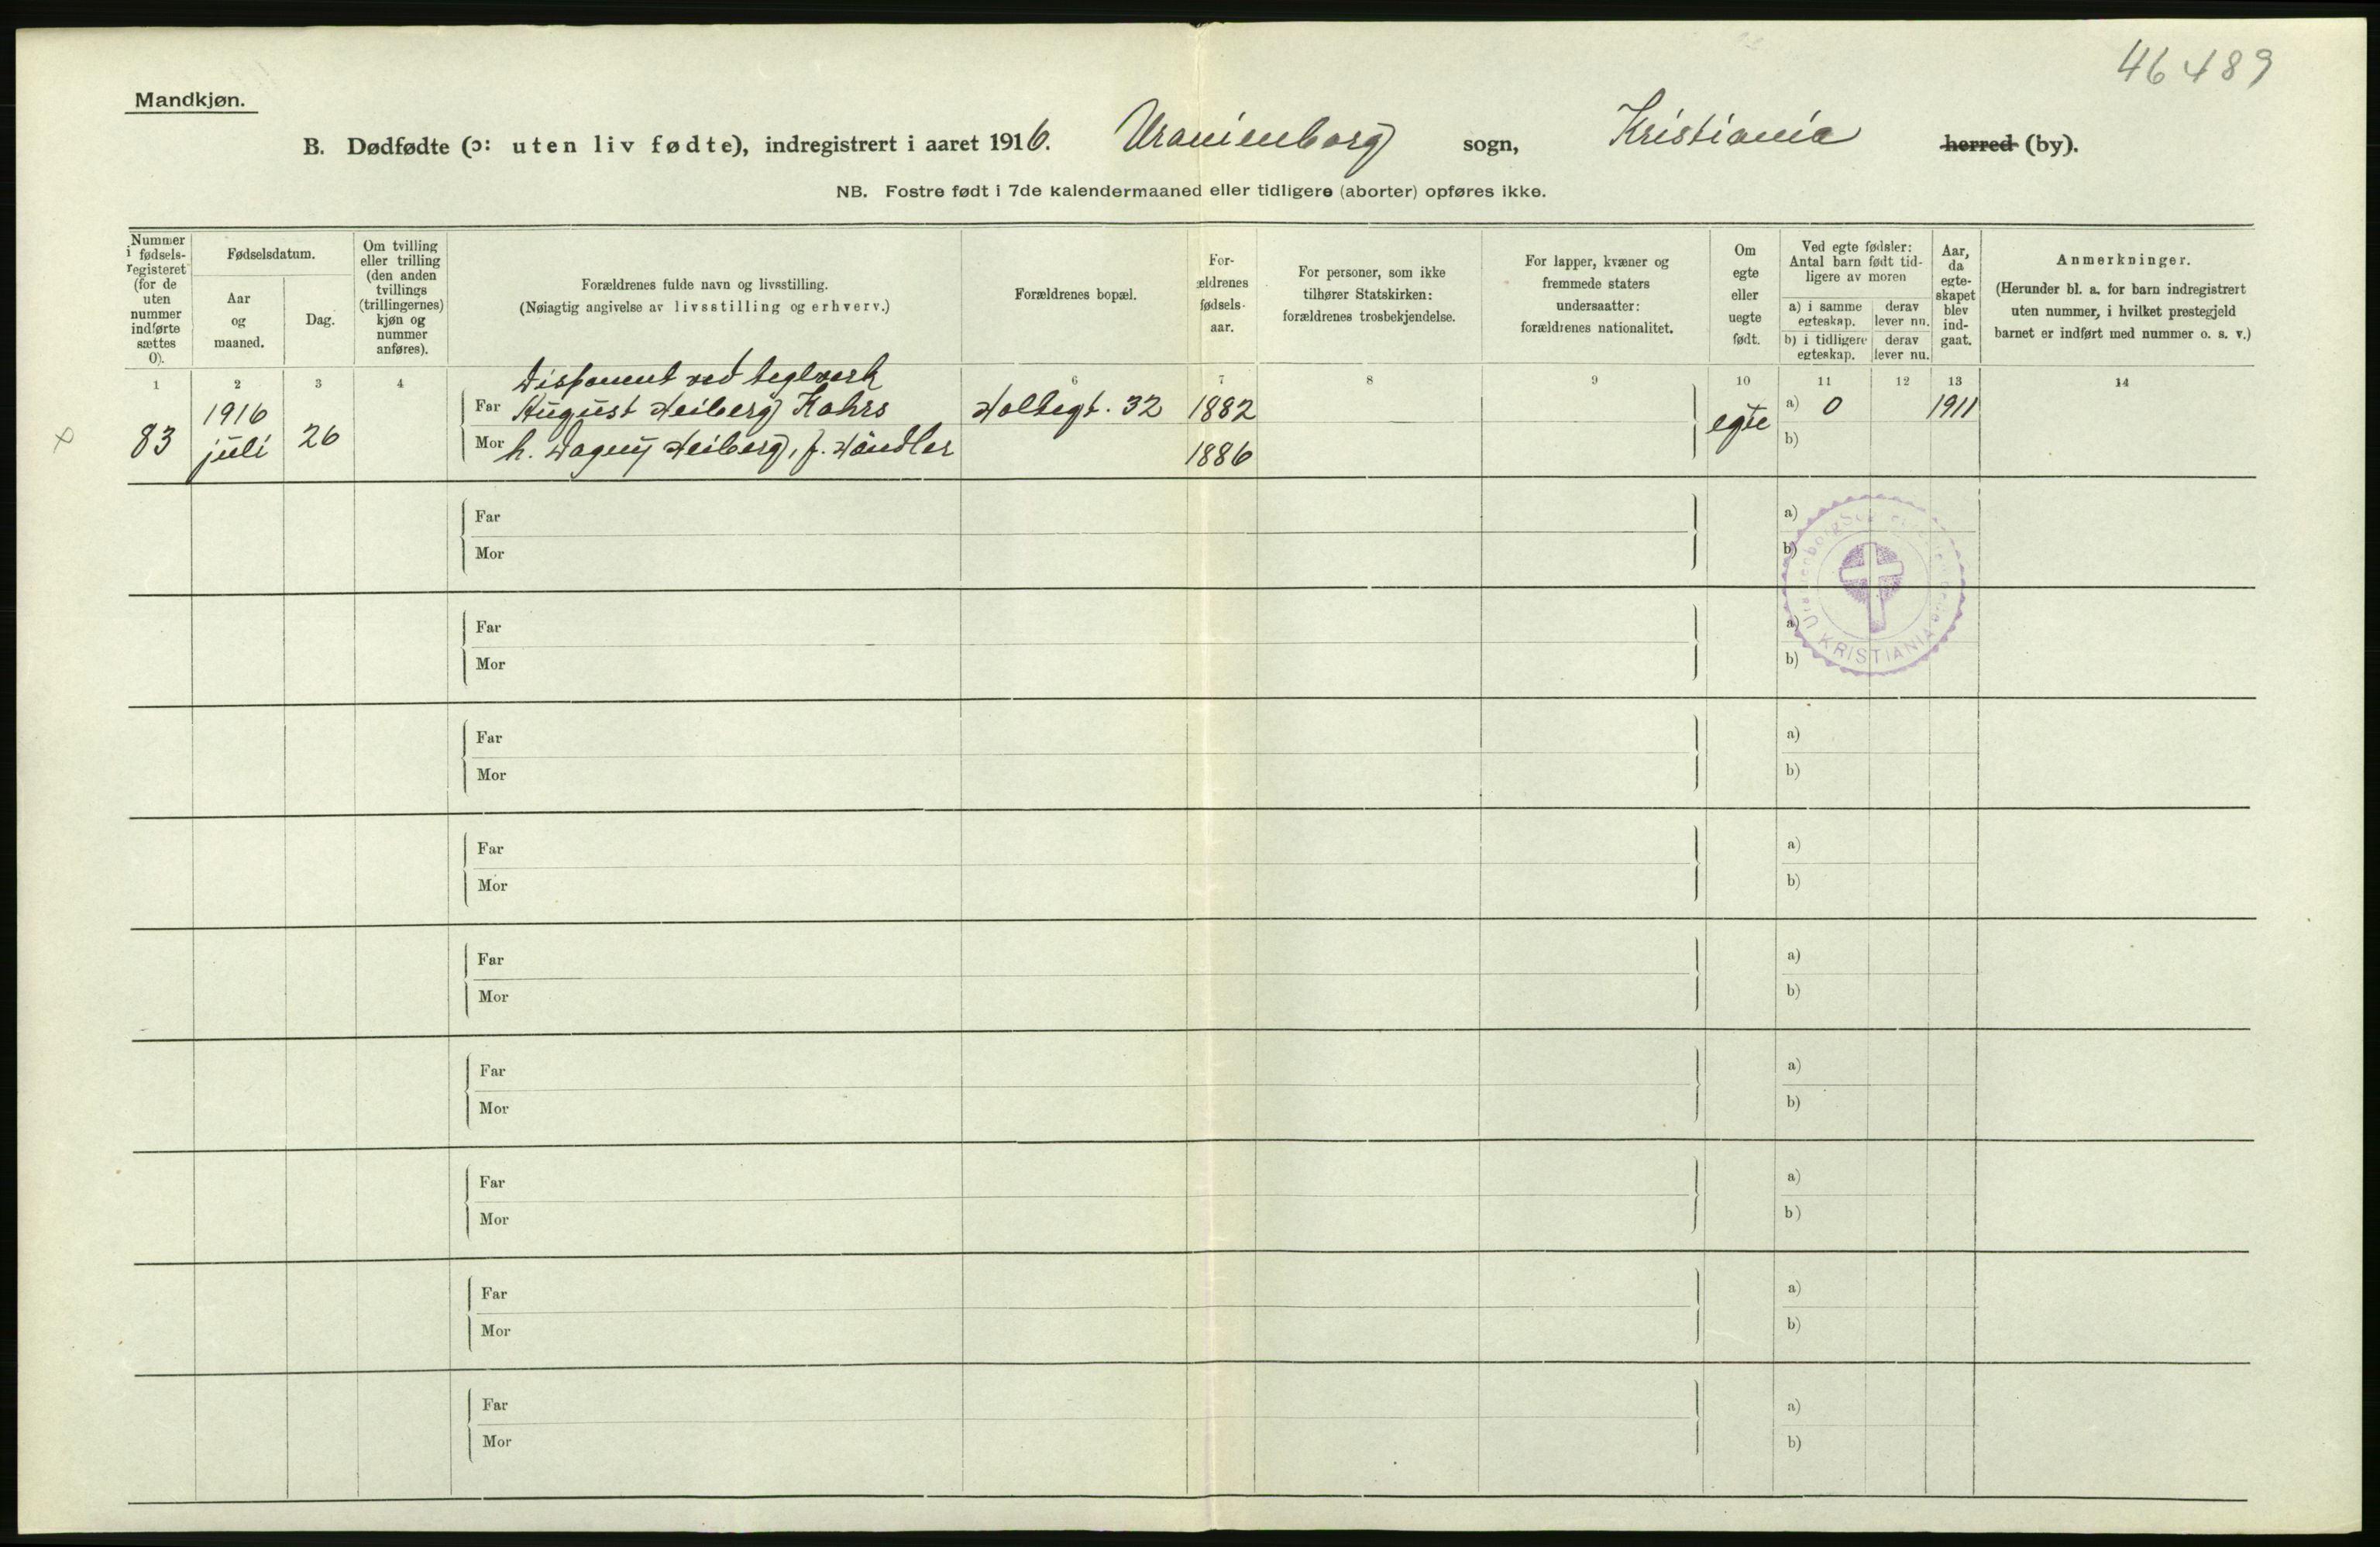 46 489
Mandkjøn.
B. Dødfødte (ɔ: uten liv fødte), indregistrert i aaret 1916. Uranienborg sogn, Kristiania herred (by).
NB. Fostre født i 7de kalendermaaned eller tidligere (aborter) opføres ikke.
Nummer
i fødsels-
registeret
(for de
uten
nummer
indførte
sættes
0).
Fødselsdatum.
Aar
og
maaned.
Dag.
Om tvilling
eller trilling
(den anden
tvillings
(trillingernes)
kjøn og
nummer
anføres).
Forældrenes fulde navn og livsstilling.
(Nøiagtig angivelse av livsstilling og erhverv.)
Forældrenes bopæl.
For-
ældrenes
fødsels-
aar.
For personer, som ikke
tilhører Statskirken:
forældrenes trosbekjendelse.
For lapper, kvæner og
fremmede staters
undersaatter:
forældrenes nationalitet.
Om
egte
eller
uegte
født.
Ved egte fødsler:
Antal barn født tid-
ligere av moren
a) i samme
egteskap.
derav
lever nu.
b) i tidligere
egteskap.
derav
lever nu.
Aar,
da
egte-
skapet
blev
ind-
gaat.
Anmerkninger.
(Herunder bl. a. for barn indregistrert
uten nummer, i hvilket prestegjeld
barnet er indført med nummer o. s. v.)
1 2 3 4 6 7 8 9 10 11 12 13 14
Disponent ved teglverk
1916 Far August Heiberg Kahrs Holtegt. 32 1882 a) 0 1911
83 juli 26 Mor h. Dagny Heiberg, f. 1886 egte b)
Far a)
Mor b)
Far a)
Mor b)
KRISTIANIA
Far a)
Mor b)
Far a)
Mor b)
Far a)
Mor b)
Far a)
Mor b)
Far a)
Mor b)
Far a)
Mor b)
Far a)
Mor b)